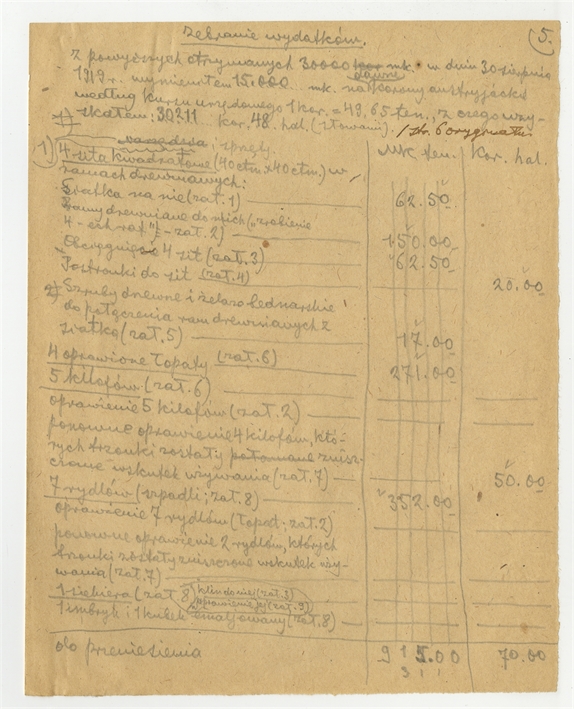 Zebranie wydatków.
5.
Z powyższych otrzymanych 30000 mk. w dniu 30 sierpnia
1919 r. wymieniłem 15.000 mk. na korony austryjackie
według kursu urzędowego 1 kor. = 49,65 fen., z czego uzy-
skałem: 30211 kor. 48 hal. (złowami).
1 str. 6 oryginału.
narzędzia i sprzęty.
Mk fen. Kor. hal.
1) 4 sita kwadratowe (40 ctm. x 40 ctm.) w
ramach drewnianych:
Siatka na nie (zał. 1) 62.50
Ramy drewniane do nich („zrobienie
4-ech raf" - zał. 2) 150.00
Obciągnięcie 4 sit (zał. 3) 62.50
Postronki do sit (zał. 4) 20.00
2) Szruby drzewne i żelazo bednarskie
do połączenia ram drewnianych z
siatką (zał. 5) 17.00
4 oprawione łopaty (zał. 6) 271.00
5 kilofów (zał. 6)
oprawienie 5 kilofów (zał. 2)
ponowne oprawienie 4 kilofów, któ-
rych trzonki zostały połamane znisz-
czone wskutek używania (zał. 7) 50.00
7 rydlów (szpadli; zał. 8) 352.00
oprawienie 7 rydlów (łopat; zał. 2)
ponowne oprawienie 2 rydlów, których
trzonki zostały zniszczone wskutek uży-
wania (zał. 7)
1 siekiera (zał. 8) klin do niej (zał. 3)
oprawienie jej (zał. 3)
1 imbryk i 1 kubek emaljowany (zał. 8)
do przeniesienia 915.00 70.00
31